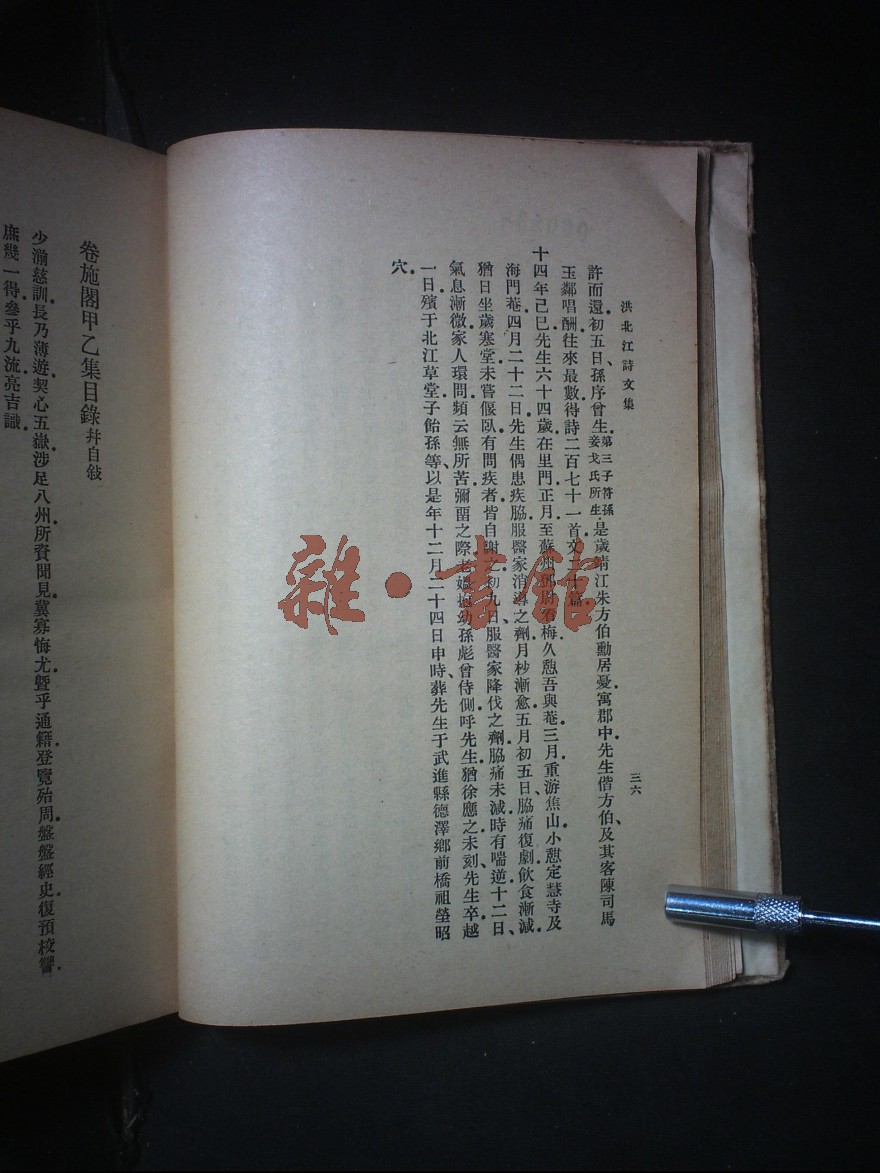 洪北江詩文集
三六
許而還。初五日、孫序曾生。第三子符孫
妾戈氏所生。
是歲靖江朱方伯勳居憂寓郡中。先生偕方伯、及其客陳司馬
玉鄰唱酬。往來最數。得詩二百七十一首。文二十篇。
十四年己巳。先生六十四歲。在里門。正月、至蘇州鄧尉石梅。久憩吾與菴。三月、重游焦山。小憩定慧寺及
海門菴。四月二十二日。先生偶患疾脇。服醫家消導之劑。月杪漸愈。五月初五日。脇痛復劇。飲食漸減。
猶日坐歲寒堂。未嘗偃臥。有問疾者、皆自謝之。初九日、服醫家降伐之劑。脇痛未減。時有喘逆。十二日、
氣息漸微。家人環問。頻云無所苦。彌留之際。老嫗抱幼孫彪曾侍側。呼先生。猶徐應之。未刻、先生卒。越
一日。殯于北江草堂。子飴孫等、以是年十二月二十四日申時、葬先生于武進縣德澤鄉前橋祖塋昭
穴。
卷施閣甲乙集目錄 幷自敍
少漸慈訓。長乃薄遊。契心五嶽。涉足八州。所資聞見。冀寡悔尤。曁乎通籍。登覽殆周。盤盤經史。復預校讐。
庶幾一得。參乎九流。亮吉識。
雜·書館